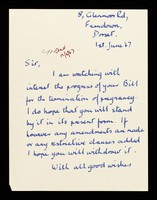 8, Glenmoor Rd,
Ferndown,
Dorset.
1st. June 67
Sir,
I am watching with
interest the progress of your Bill
for the termination of pregnancy.
I do hope that you will stand
by it in its present form. If
however any amendments are made
or any restrictive clauses added
I hope you will withdraw it.
With all good wishes